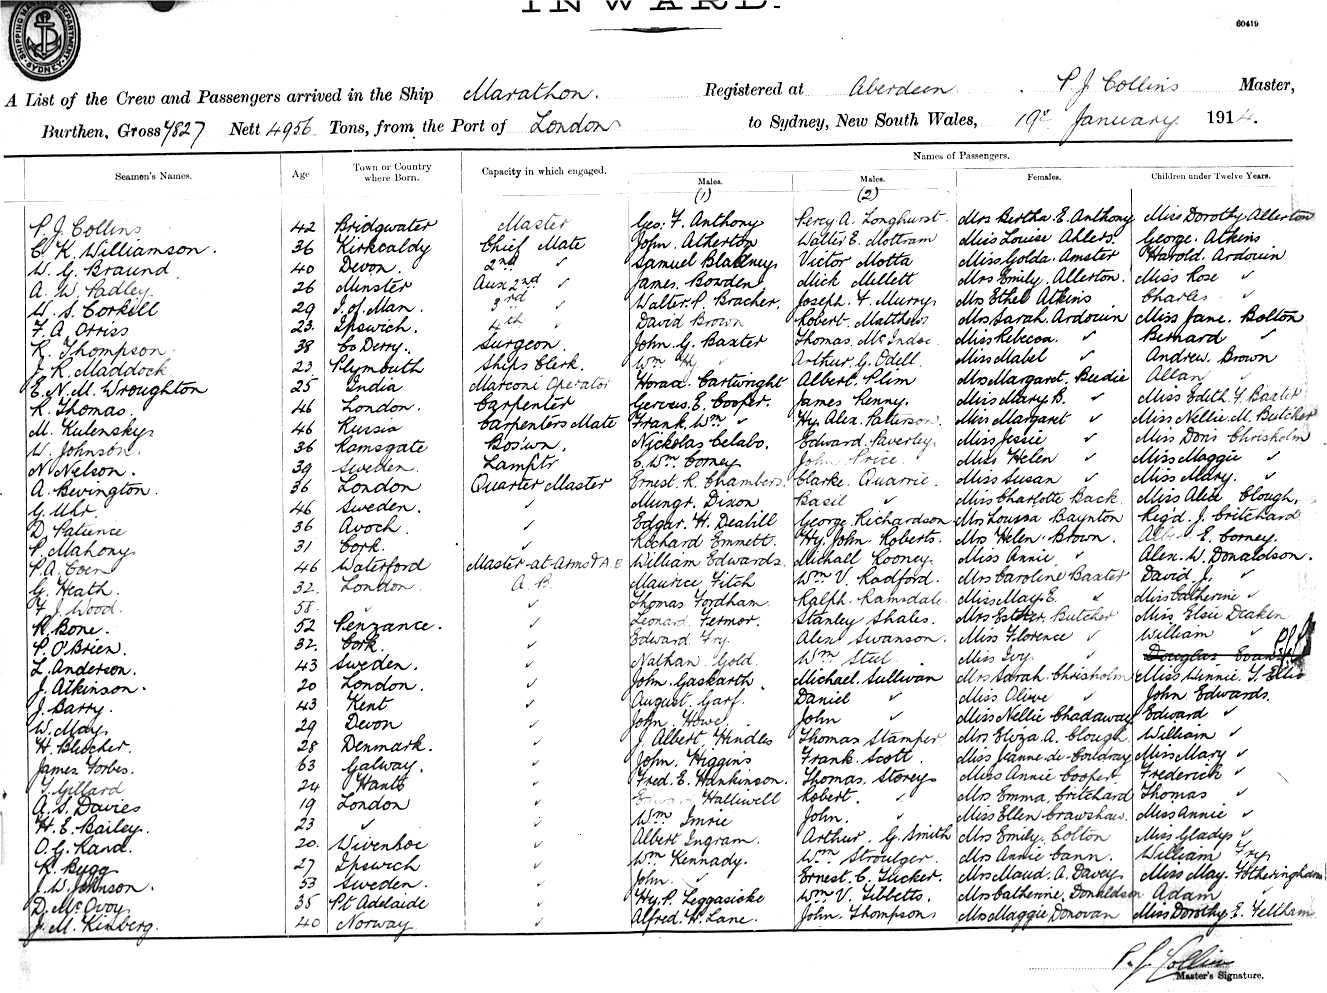 INWARD.
60419
SHIPPING MASTER'S DEPARTMENT SYDNEY
A List of the Crew and Passengers arrived in the Ship Marathon. Registered at Aberdeen. P. J. Collins Master,
Burthen, Gross 7827 Nett 4956 Tons, from the Port of London to Sydney, New South Wales, 19th January 1914.
Seamen's Names. Age Town or Country where Born. Capacity in which engaged. Names of Passengers.
Males. Males. Females. Children under Twelve Years.
(1) (2)
P. J. Collins 42 Bridgwater Master Geo: F. Anthony Percy A. Longhurst Mrs Bertha E. Anthony Miss Dorothy Allerton
C. K. Williamson. 36 Kirkcaldy Chief Mate John Atherton Walter E. Mottram Miss Louise Ahlers. George Atkins
W. G. Braund 40 Devon. 2nd " Samuel Blakney Victor Motta Miss Golda Amster Harold Ardouin
A. W. Padley 26 Minster Aux 2nd " James Bowden Mick Millett Mrs Emily Allerton. Miss Rose "
W. S. Corkill 29 I. of Man. 3rd " Walter P. Bracher. Joseph F. Murry Mrs Ethel Atkins Charles "
F. A. Orriss 23 Ipswich. 4th " David Brown Robert Matthews Mrs Sarah Ardouin Miss Jane Bolton
R. Thompson 38 Co Derry. Surgeon. John G. Baxter Thomas McIndoe Miss Rebecca " Bernard "
J. R. Maddock 23 Plymouth Ships Clerk. Wm Hy " Arthur G. Odell. Miss Mabel " Andrew Brown
E. N. M. Wroughton 25 India Marconi Operator Horace Cartwright Albert Plim Mrs Margaret Beedie Allan "
R. Thomas 46 London. Carpenter E. Cooper. James Penny. Miss Mary B. " Miss Edith F. Baxter
M. Kulensky 46 Russia Carpenters Mate Frank Wm " Hy. Alex. Patterson Miss Margaret " Miss Nellie M. Butcher
W. Johnson. 36 Ramsgate Bos'wn. Nickolas Celabo. Edward Paverley. Miss Jessie " Miss Doris Chrisholm
N. Nelson. 39 Sweden. Lamptr C. Wm Corney John Price Miss Helen " Miss Maggie "
A. Bevington. 36 London Quarter Master Ernest R. Chambers. Clarke Quarrie Miss Susan " Miss Mary. "
G. Uhr. 46 Sweden. " Mungr. Dixon Basil " Miss Charlotte Back Miss Alice Clough,
D. Patience 36 Avoch. " Edgar. H. Deabill George Richardson Mrs Louisa Baynton Regd. J. Critchard
P. Mahony 31 Cork. " Richard Emmett. Hy. John Roberts. Mrs Helen Brown. E. Corney.
P. A. Coen 46 Waterford Master-at-Arms & A.B William Edwards. Michall Rooney. Miss Annie " Alex. W. Donaldson.
G. Heath. 32 London A.B. Maurice Fitch Wm V. Radford. Mrs Caroline Baxter David J. "
F. J. Wood. 58 " " Thomas Fordham. Ralph Ramsdale Miss May E. " Miss Catherine "
R. Bone. 52 Penzance. " Leonard Fermor. Stanley Shales. Mrs Ester Butcher Miss Elsie Deaken
P. O'Brien. 32 Cork " Edward Fry. Alex Swanson. Miss Florence " William "
L. Anderson. 43 Sweden. " Nathan Gold. Wm Steel Miss Ivy " Douglas Evans
J. Atkinson. 20 London. " John Gaskarth. Michael Sullivan Mrs Sarah Chrisholm Miss Winnie F. Ellis
J. Barry. 43 Kent " August Garf. Daniel " Miss Olive " John Edwards.
W. May. 29 Devon " John Howe. John " Miss Nellie Chadaway Edward "
H. Blucher. 28 Denmark. " J. Albert Hindles Thomas Stamper Mrs Eliza A. Clough William "
James Forbes. 63 Galway. " John Higgins Frank Scott. Miss Jeanne de Coudray Miss Mary "
J. Gillard 24 Hants " Fred. E. Hankinson. Thomas Storey Miss Annie Cooper Frederick "
A. S. Davies 19 London " Halliwell Robert. " Mrs Emma Critchard Thomas "
H. E. Bailey. 23 " " Wm Imrie John. " Miss Ellen Crawshaw. Miss Annie "
O. G. Rand. 20. Wivenhoe " Albert Ingram. Arthur G. Smith Mrs Emily Colton Miss Gladys "
R. Bugg 27 Ipswich " Wm Kennady. Wm Stroulger. Mrs Annie Cann. William Fry
J. W. Johnson. 53 Sweden. " John. " Ernest C. Tucker. Mrs Maud A. Davey Miss May Fotheringham
D. McAvoy 35 Pt Adelaide " Hy. P. Leggasicke Wm V. Tibbetts. Mrs Catherine Donaldson Adam "
J. M. Kinberg. 40 Norway " Alfred H. Lane. John Thompson Ms Maggie Donovan Miss Dorothy E. Feltham
P. J. Collins
Master's Signature.